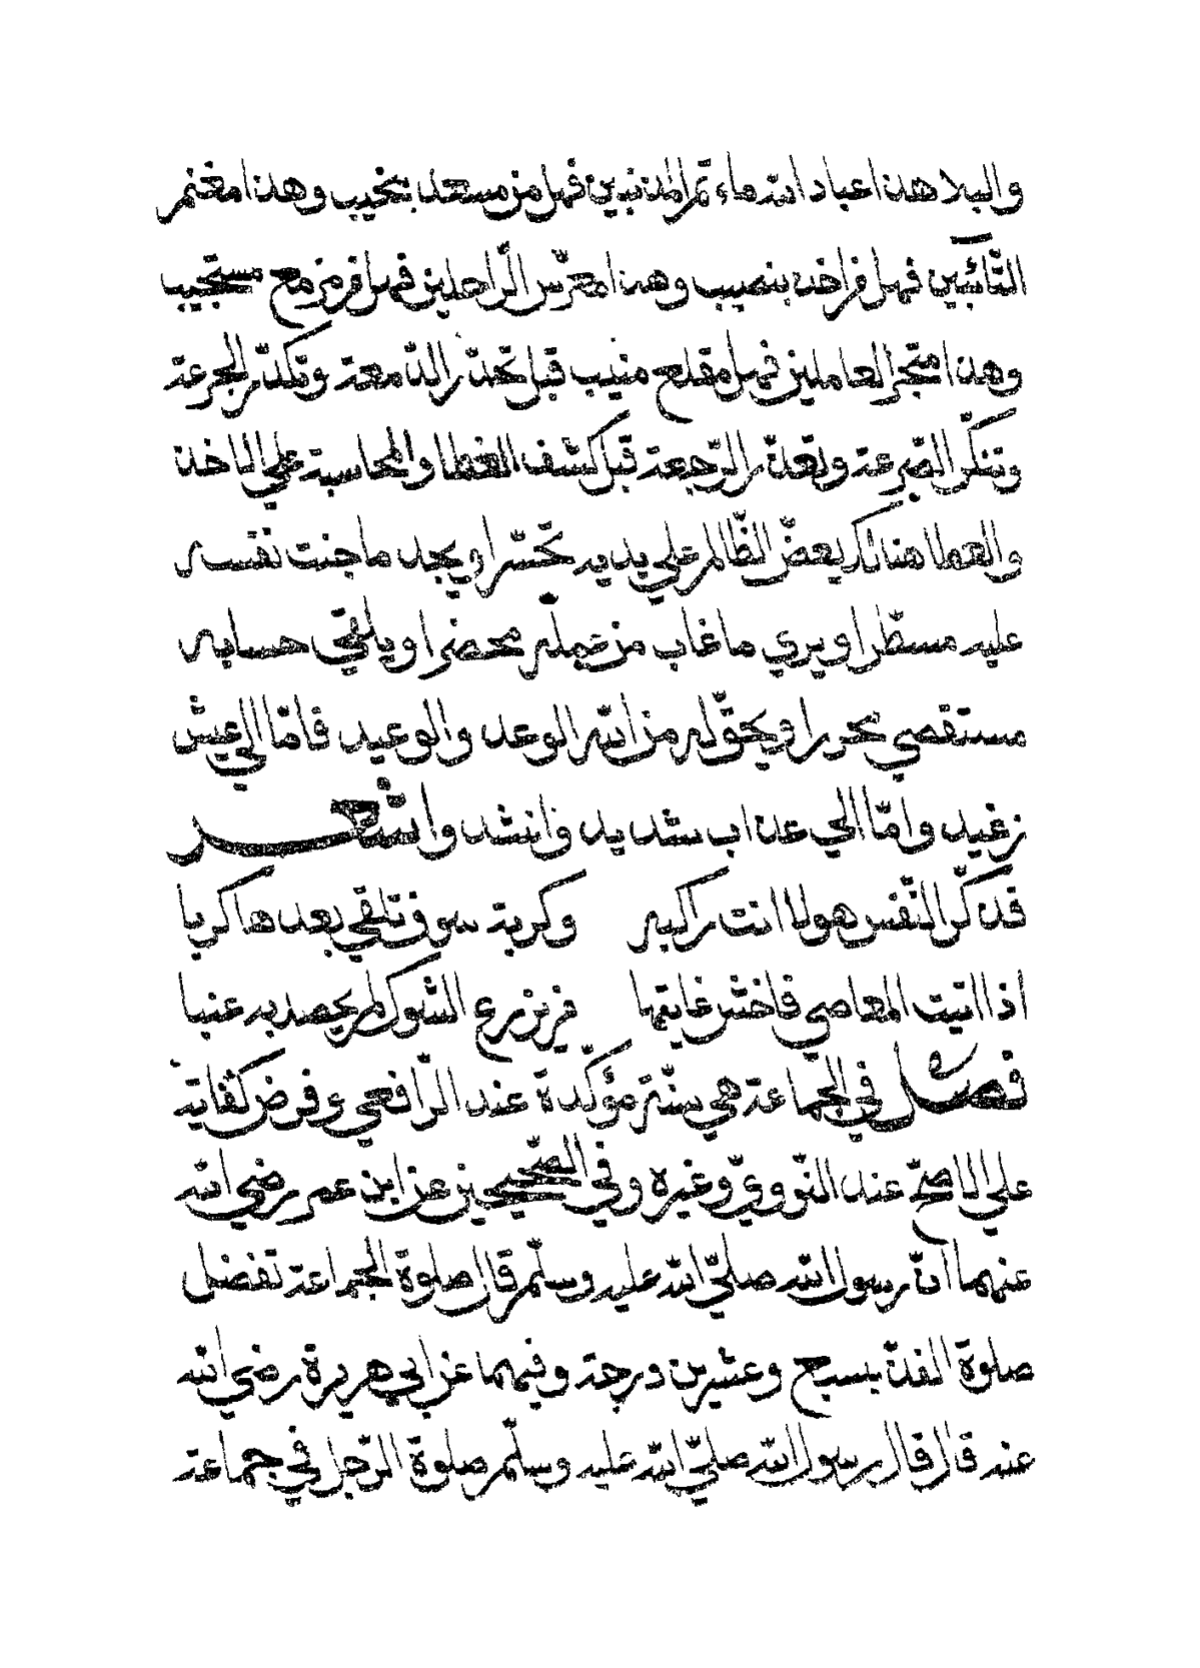 والبلا هذا عباد الله ماء تم المذنبين فهل من مسعد بنحيب وهذا مغنم
التّائبين فهل فر اخذ بنصيب وهذا معرّس الراحلين فهل فرمزمع مستجيب
وهذا متجر العاملين فهل مقلع منيب قبل تحدّر الدّمعة وتكدّر الجرعة
وتنكّر الضرعة وتعذّر الرّجعة قبل كشف الغطا والمحاسبة علي الاخذ
والعطا هنالك يعضّ الظّالم علي يديه تحسّرا ويجد ما جنت نفسه
عليه مسطّرا ويري ما غاب من عمله محضرا ويلقي حسابه
مستقصي محررا ويحقّ له من الله الوعد والوعيد فامّا الي عيش
رغيد وامّا الي عذاب شديد وانشد واشعر
قد ذكّر النّفس هولا انت راكبه وكربة سوف تلقي بعدها كربا
اذا اتيت المعاصي فاخش غايتها فمن يزرع الشوك لم يحصد به عنبا
فصل في الجمّاعة هي سنّة مؤكّدة عند الرّافعي وفرض كفاية
علي الاصحّ عند النّوويّ وغيره وفي الصّحيحين عن ابن عمر رضي الله
عنهما انّ رسول الله صليّ الله عليه وسلّم قال صلوة الجماعة تفضل
صلوة الفذّ بسبع وعشرين درجة وفيهما عن ابي هريرة رضي الله
عنه قال قال رسول الله صليّ الله عليه وسلّم صلوة الرّجل في جماعة